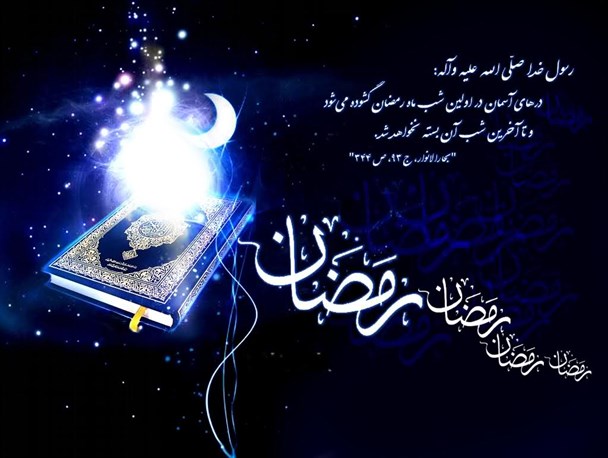 رسول خدا صلّی الله علیه وآله:
درهای آسمان در اولین شب ماه رمضان گشوده می‌شود
و تا آخرین شب آن بسته نخواهد شد.
"بحارالانوار، ج ۹۳، ص ۳۴۴"
رمضان
رمضان
رمضان رمضان